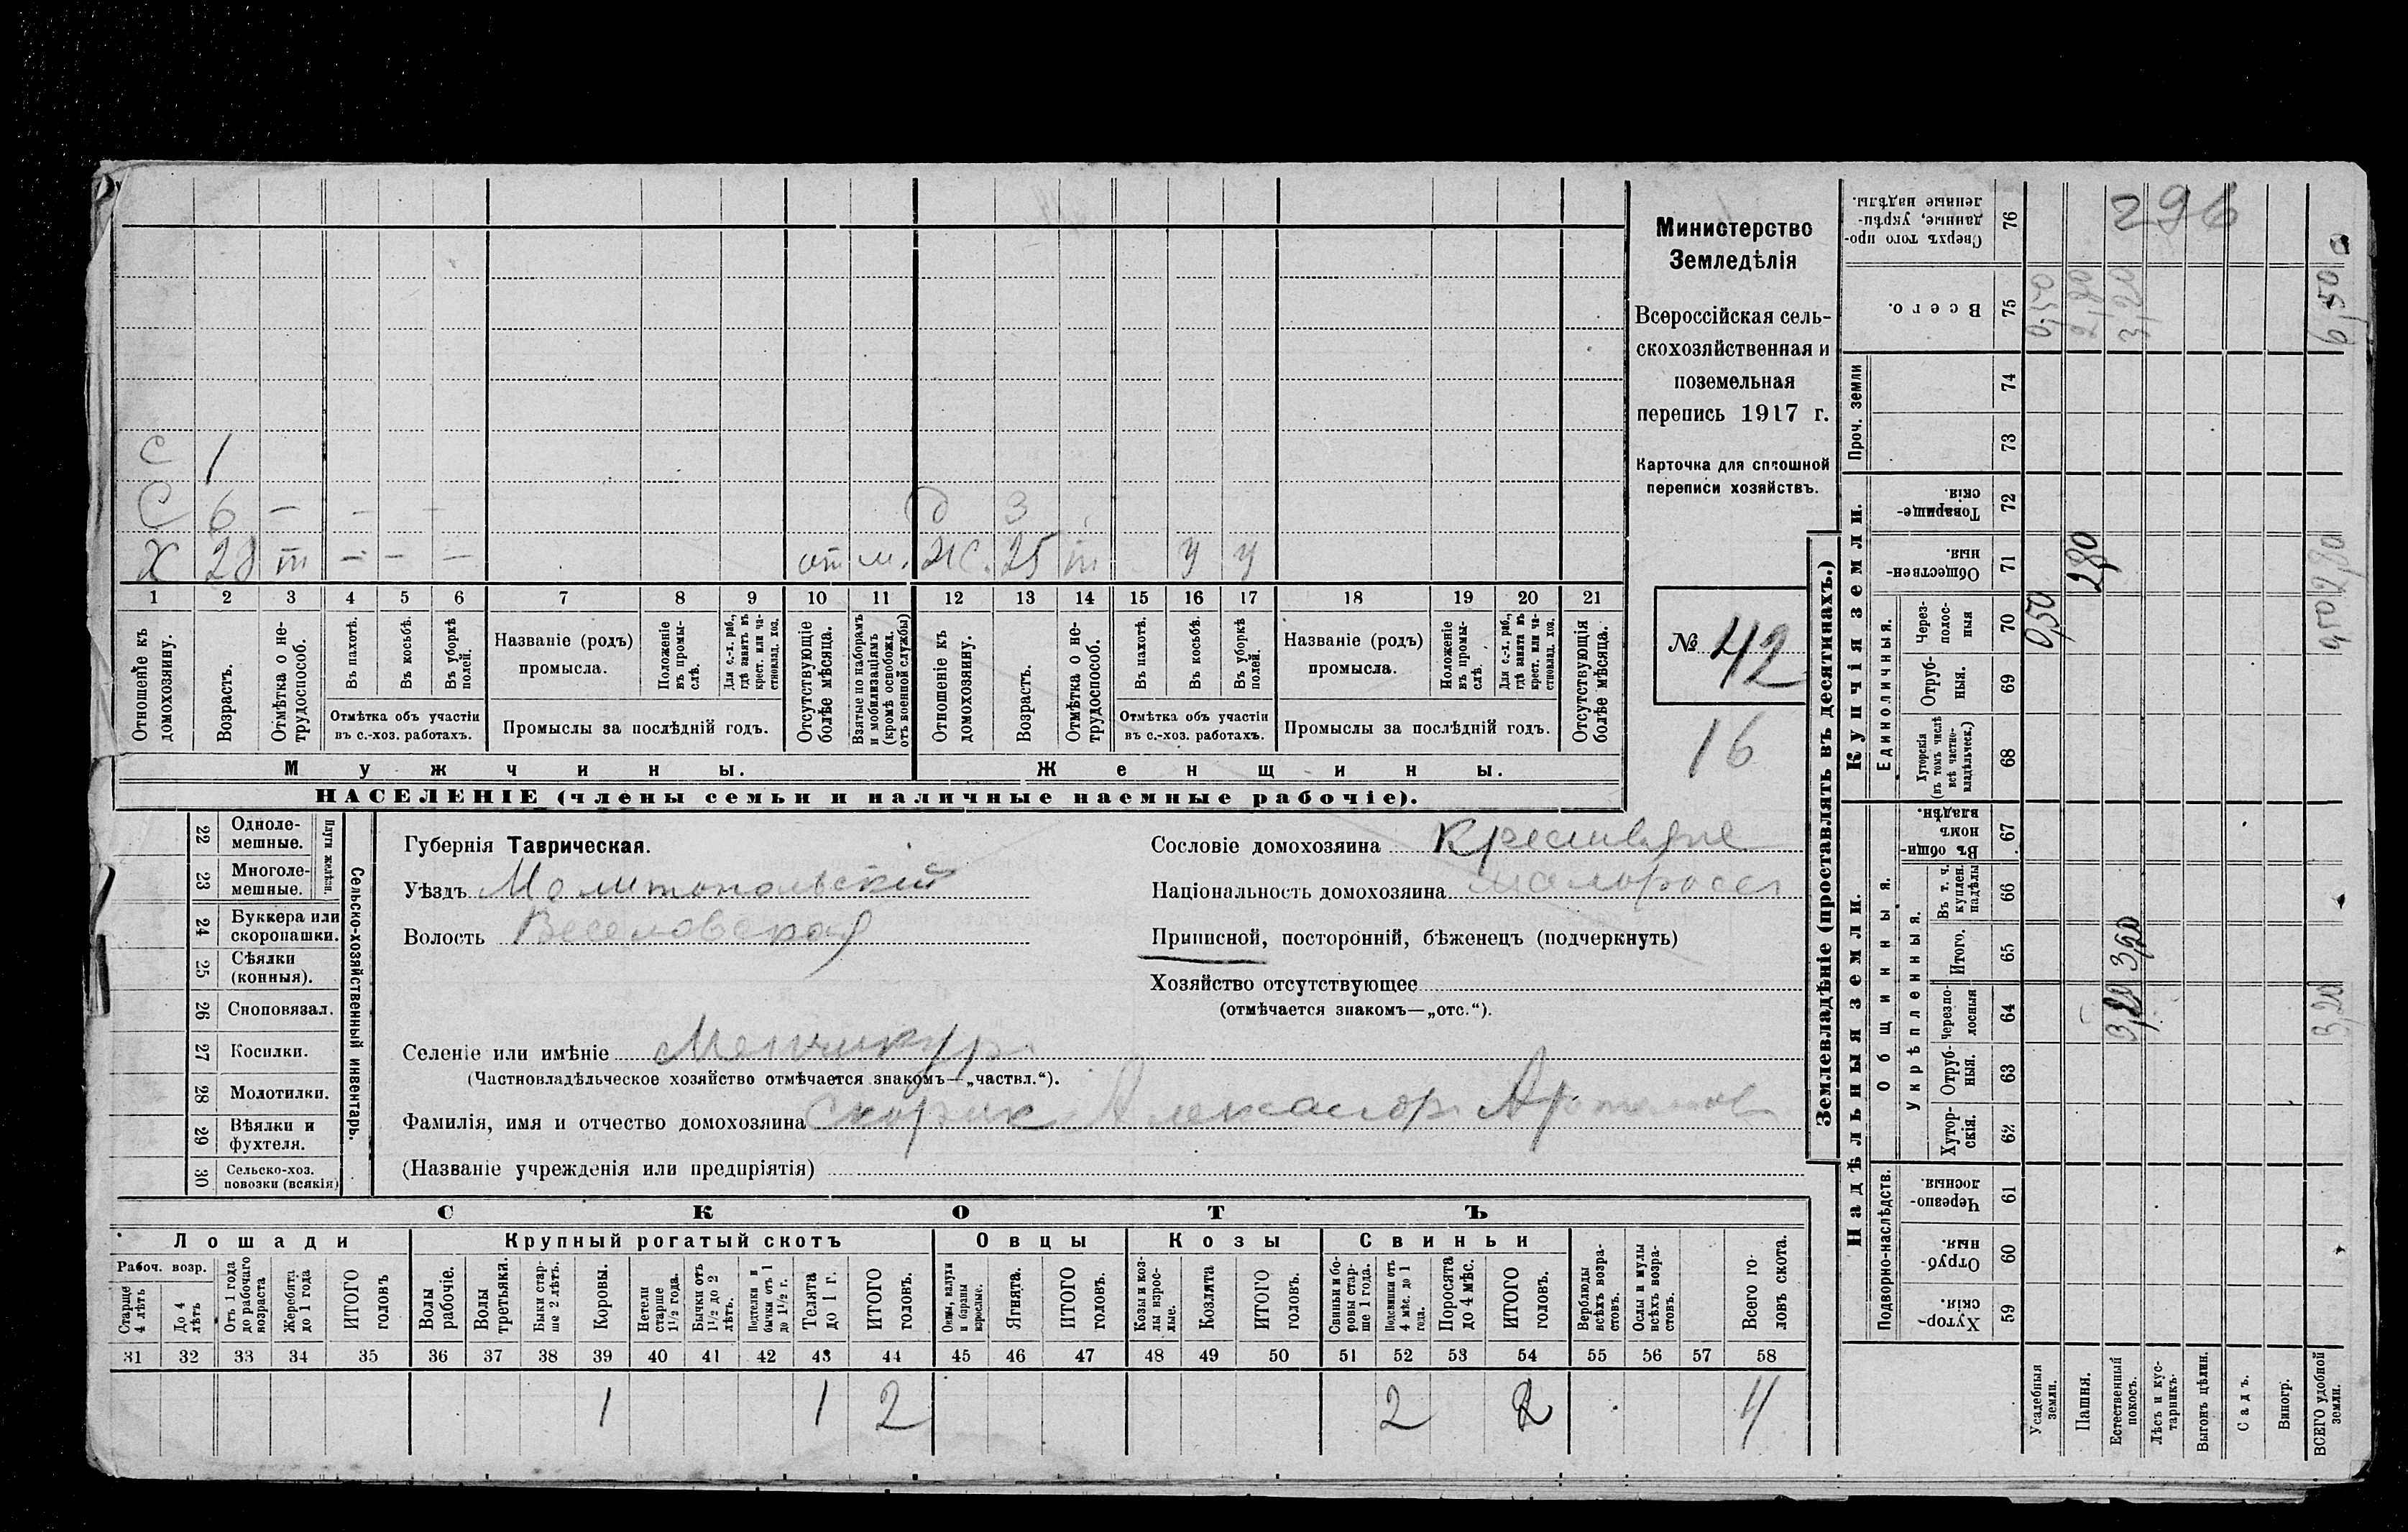 Министерство
Земледѣлія
Всероссійская сель-
скохозяйственная и
поземельная
перепись 1917 г.
Карточка для сплошной
переписи хозяйствъ.
№ 42
16
С 1
С 6 — — — — д 3
Х 28 т — — — от м. ж. 25 т у у
1 2 3 4 5 6 7 8 9 10 11 12 13 14 15 16 17 18 19 20 21
Отношеніе къ домохозяину.
Возрастъ.
Отмѣтка о не-трудоспособ.
Въ пахотѣ.
Въ косьбѣ.
Въ уборкѣ полей.
Отмѣтка объ участіи
въ с.-хоз. работахъ.
Названіе (родъ)
промысла.
Положеніе въ промы-слѣ.
Для с.-х. раб., гдѣ занятъ въ крест. или ча-стновлад. хоз.
Промыслы за послѣдній годъ.
Отсутствующіе болѣе мѣсяца.
Взятые по наборамъ и мобилизаціямъ (кромѣ освобожд. отъ военной службы)
Отношеніе къ домохозяину.
Возрастъ.
Отмѣтка о не-трудоспособ.
Въ пахотѣ.
Въ косьбѣ.
Въ уборкѣ полей.
Отмѣтка объ участіи
въ с.-хоз. работахъ.
Названіе (родъ)
промысла.
Положеніе въ промы-слѣ.
Для с.-х. раб., гдѣ занята въ крест. или ча-стновлад. хоз.
Промыслы за послѣдній годъ.
Отсутствующія болѣе мѣсяца.
Мужчины.
Женщины.
НАСЕЛЕНІЕ (члены семьи и наличные наемные рабочіе).
Сельско-хозяйственный инвентарь.
Плуги желѣзн.
22 Одноле-мешные.
23 Многоле-мешные.
24 Буккера или скоропашки.
25 Сѣялки (конныя).
26 Сноповязал.
27 Косилки.
28 Молотилки.
29 Вѣялки и фухтеля.
30 Сельско-хоз. повозки (всякія)
Губернія Таврическая.
Уѣздъ Мелитопольскій
Волость Веселовская
Сословіе домохозяина
Національность домохозяина малоросс
Приписной, посторонній, бѣженецъ (подчеркнуть)
Хозяйство отсутствующее
(отмѣчается знакомъ—„отс.“).
Селеніе или имѣніе Менчикур
(Частновладѣльческое хозяйство отмѣчается знакомъ—„частвл.“).
Фамилія, имя и отчество домохозяина Скорик Александр Артемов
(Названіе учрежденія или предпріятія)
СКОТЪ
Лошади
Крупный рогатый скотъ
Овцы
Козы
Свиньи
Рабоч. возр.
Старше 4 лѣтъ
До 4 лѣтъ
Отъ 1 года до рабочаго возраста
Жеребята до 1 года
ИТОГО головъ
Волы рабочіе.
Волы третьяки.
Быки стар-ше 2 лѣтъ.
Коровы.
Нетели старше 1½ года.
Бычки отъ 1½ до 2 лѣтъ.
Подтелки и бычки отъ 1 до 1½ г.
Телята до 1 г.
ИТОГО головъ.
Овцы, валухи и бараны взрослые.
Ягнята.
ИТОГО головъ.
Козы и коз-лы взрос-лые.
Козлята
ИТОГО головъ.
Свиньи и бо-ровы стар-ше 1 года.
Подсвинки отъ 4 мѣс. до 1 года.
Поросята до 4 мѣс.
ИТОГО головъ.
Верблюды всѣхъ возра-стовъ.
Ослы и мулы всѣхъ возра-стовъ.
Всего го-ловъ скота.
31 32 33 34 35 36 37 38 39 40 41 42 43 44 45 46 47 48 49 50 51 52 53 54 55 56 57 58
1 1 2 2 2 4
Землевладѣніе (проставлять въ десятинахъ.)
Надѣльныя земли.
Купчія земли.
Проч. земли
Подворно-наслѣдств.
Общинныя.
Укрѣпленныя.
Единоличныя.
Хутор-скія. 59
Отруб-ныя. 60
Черезпо-лосныя. 61
Хутор-скія. 62
Отруб-ныя. 63
Черезпо-лосныя 64
Итого. 65
Въ т. ч. куплен. надѣлы 66
Въ общин-номъ владѣн. 67
Хуторскія (въ томъ числѣ всѣ частно-владѣльческ.) 68
Отруб-ныя. 69
Черезполос-ныя 70
Обществен-ныя. 71
Товарище-скія. 72
73
74
Всего. 75
Сверхъ того про-данные, укрѣп-ленные надѣлы. 76
Усадебныя земли. 0,50 0,50
Пашня. 2,80 2,80
Естественный покосъ. 3,20 3,20 3,20
Лѣсъ и кус-тарникъ.
Выгонъ цѣлин.
Садъ.
Виногр.
ВСЕГО удобной земли. 3,20 0,50 2,80 6,50
296